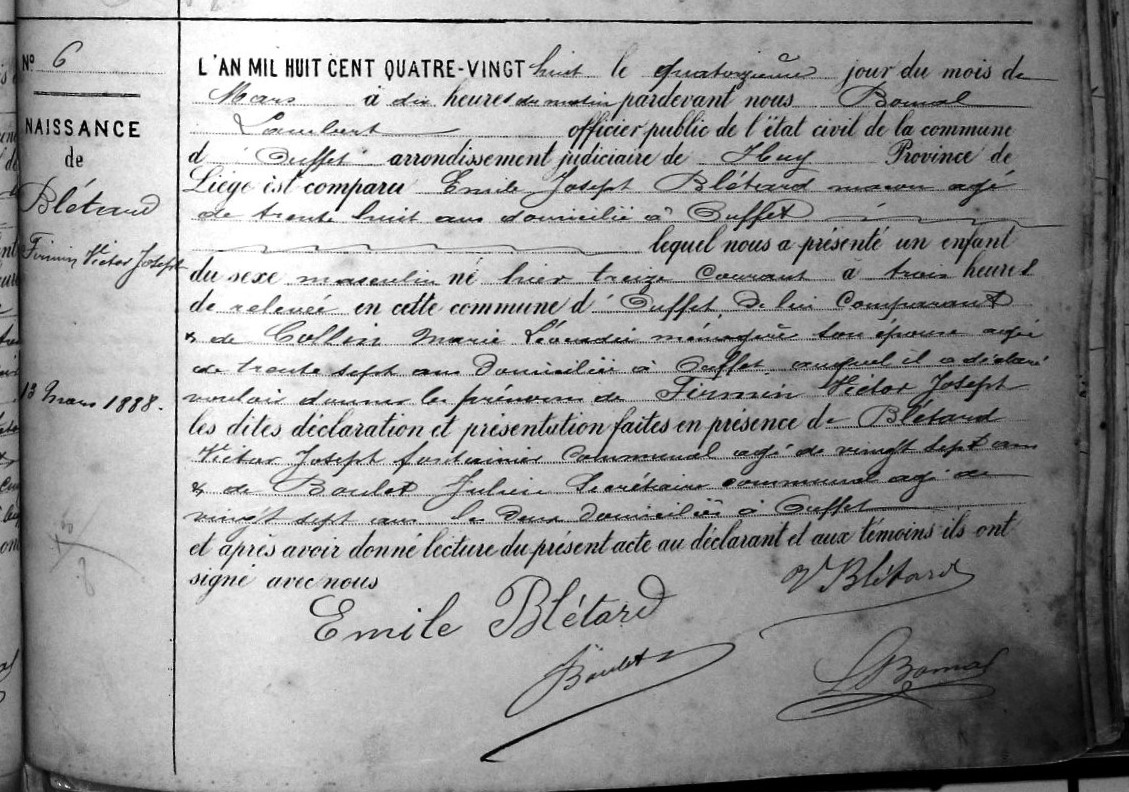 N° 6
NAISSANCE
de
Blétard
Firmin Victor Joseph
13 Mars 1888.
L'AN MIL HUIT CENT QUATRE-VINGT huit le quatorzième jour du mois de
Mars à dix heures du matin pardevant nous Bomal
Lambert officier public de l'état civil de la commune
d' Ouffet arrondissement judiciaire de Huy Province de
Liége est comparu Emile Joseph Blétard maçon agé
de trente huit ans domicilié à Ouffet
lequel nous a présenté un enfant
du sexe masculin né hier treize courant à trois heures
de relevée en cette commune d' Ouffet, de lui Comparant
& de Collin Marie Léocadie ménagère son épouse agée
de trente sept ans domiciliée à Ouffet auquel il a déclaré
vouloir donner les prénoms de Firmin Victor Joseph
les dites déclaration et présentation faites en présence de Blétard
Victor Joseph fontainier Communal agé de vingt sept ans
& de Boulet Julien Secrétaire communal agé de
vingt sept ans les deux domiciliés à Ouffet
et après avoir donné lecture du présent acte au déclarant et aux témoins ils ont
signé avec nous
V Blétard
Emile Blétard
JBoulet
LBomal